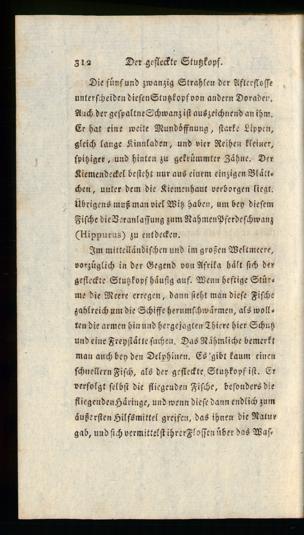 312 Der gefleckte Stutzkopf.
Die fünf und zwanzig Strahlen der Afterflosse
unterscheiden diesen Stutzkopf von andern Doraden.
Auch der gespaltne Schwanz ist auszeichnend an ihm.
Er hat eine weite Mundöffnung, starke Lippen,
gleich lange Kinnladen, und vier Reihen kleiner,
spitziger, und hinten zu gekrümmter Zähne. Der
Kiemendeckel besteht nur aus einem einzigen Blätt-
chen, unter dem die Kiemenhaut verborgen liegt.
Übrigens muß man viel Witz haben, um bey diesem
Fische die Veranlassung zum Nahmen Pferdeschwanz
(Hippurus) zu entdecken.
Im mittelländischen und im großen Weltmeere,
vorzüglich in der Gegend von Afrika hält sich der
gefleckte Stutzkopf häufig auf. Wenn heftige Stür-
me die Meere erregen, dann sieht man diese Fische
zahlreich um die Schiffe herumschwärmen, als woll-
ten die armen hin und hergejagten Thiere hier Schutz
und eine Freystätte suchen. Das Nähmliche bemerkt
man auch bey den Delphinen. Es gibt kaum einen
schnellern Fisch, als der gefleckte Stutzkopf ist. Er
verfolgt selbst die fliegenden Fische, besonders die
fliegenden Häringe, und wenn diese dann endlich zum
äußersten Hilfsmittel greifen, das ihnen die Natur
gab, und sich vermittelst ihrer Flossen über das Was-